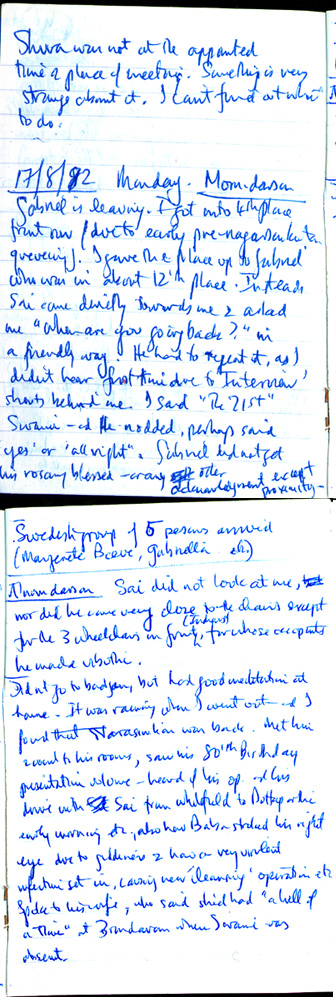 Shura was not at the appointed
time & place of meeting. Something is very
strange about it. I can't find out what
to do.
17/8/82 Monday. Morn. darsan
Gabriel is leaving. I got onto 4th place
front row (due to early pre-nagarsankirtan
queueing). I gave the place up to Gabriel
who was in about 12th place. Instead
Sai came directly towards me & asked
me "when are you going back?" in
a friendly way. He had to repeat it, as I
didn't hear first time due to 'Interview'
shouts behind me. I said "The 21st"
Swami - & He nodded, perhaps said
'yes' or 'all right'. Gabriel did not get
his rosary blessed - or any other
acknowledgment except
proximity -
Swedish group of 5 persons arrived
(Margerete Beeve, Gabriella etc.)
Sai did not look at me,
nor did he come very close to the chairs except
for the 3 wheelchairs in front, for whose occupants
he made vibuthi.
Did not go to badjans, but had good meditation at
home. It was raining when I went out - & I
found that Narasimhan was back. Met him
& went to his rooms, saw his 80th Birthday
presentation volume - heard of his op. and his
drive with Sai from Whitefield to Puttaparthi
early morning etc., also how Baba stroked his right
eye due to & how a very violent
infection set in, causing new 'cleansing' operation etc.
Spoke to his wife, who said she'd had "a hell of
a time" at Brindavan when Swami was
absent.